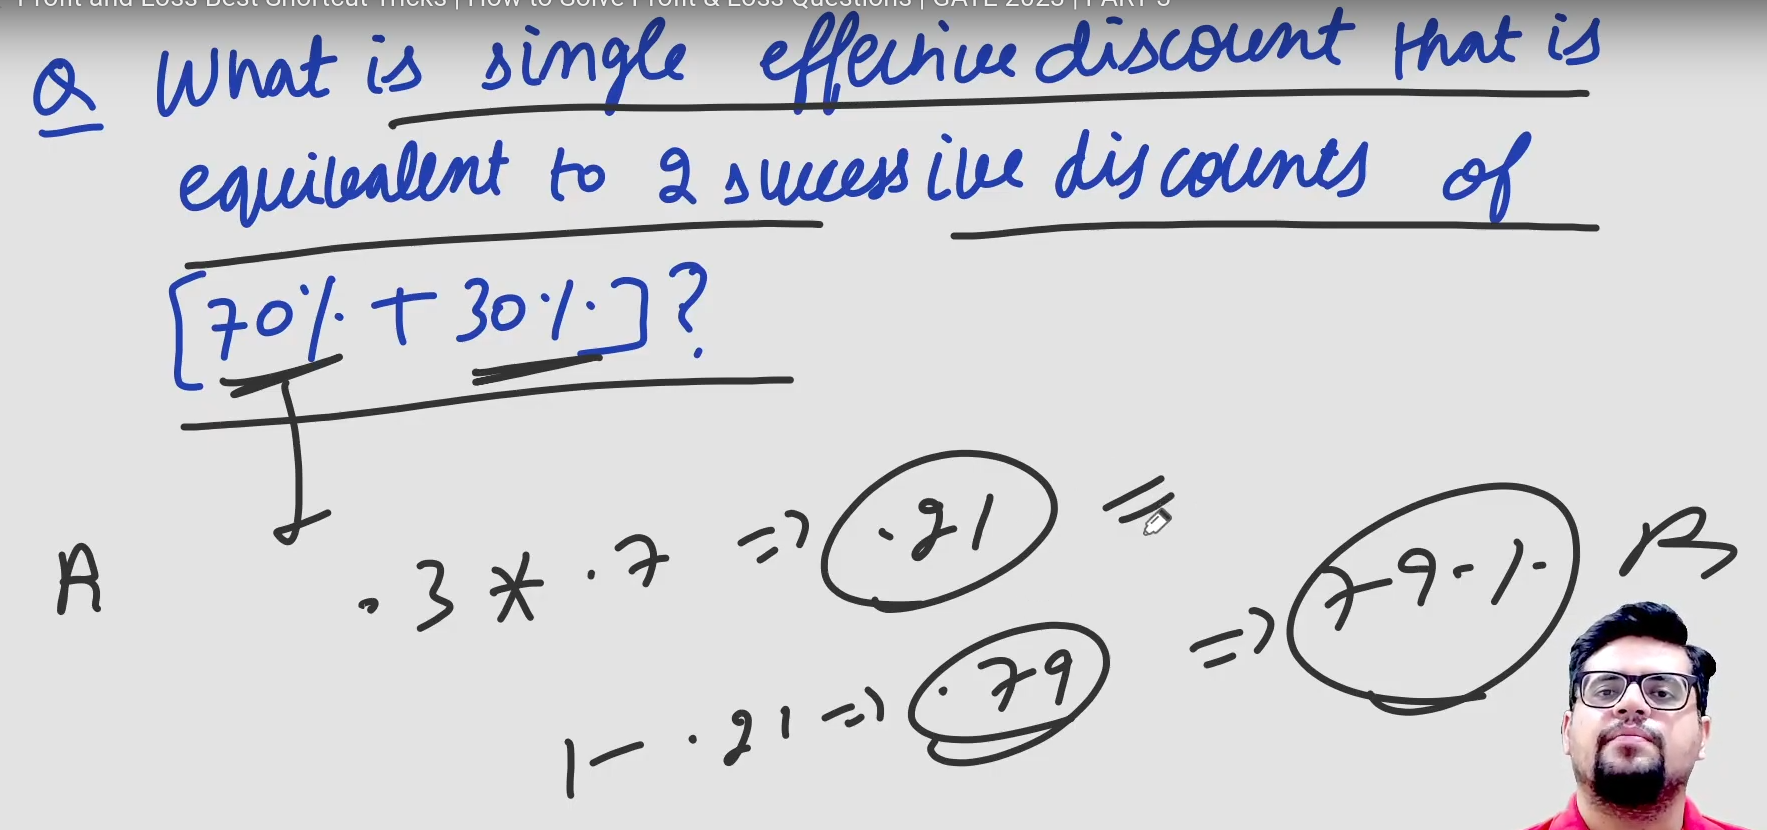 Profit and Loss Best Shortcut Tricks | How to Solve Profit & Loss Questions | GATE 2023 | PART 3
Q What is single effective discount that is
equivalent to 2 successive discounts of
[70% + 30%]?
A .3 * .7 => .21 =
1 - .21 => .79 => 79%